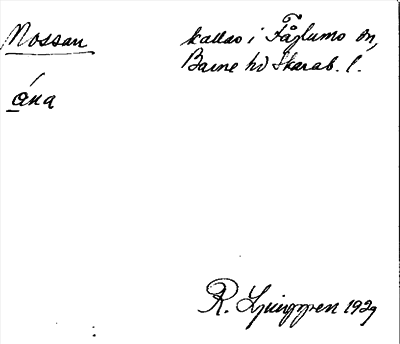 Nossan
kallas i Fåglums sn,
Barne hd Skarab. l.
ána
R. Ljunggren 1929